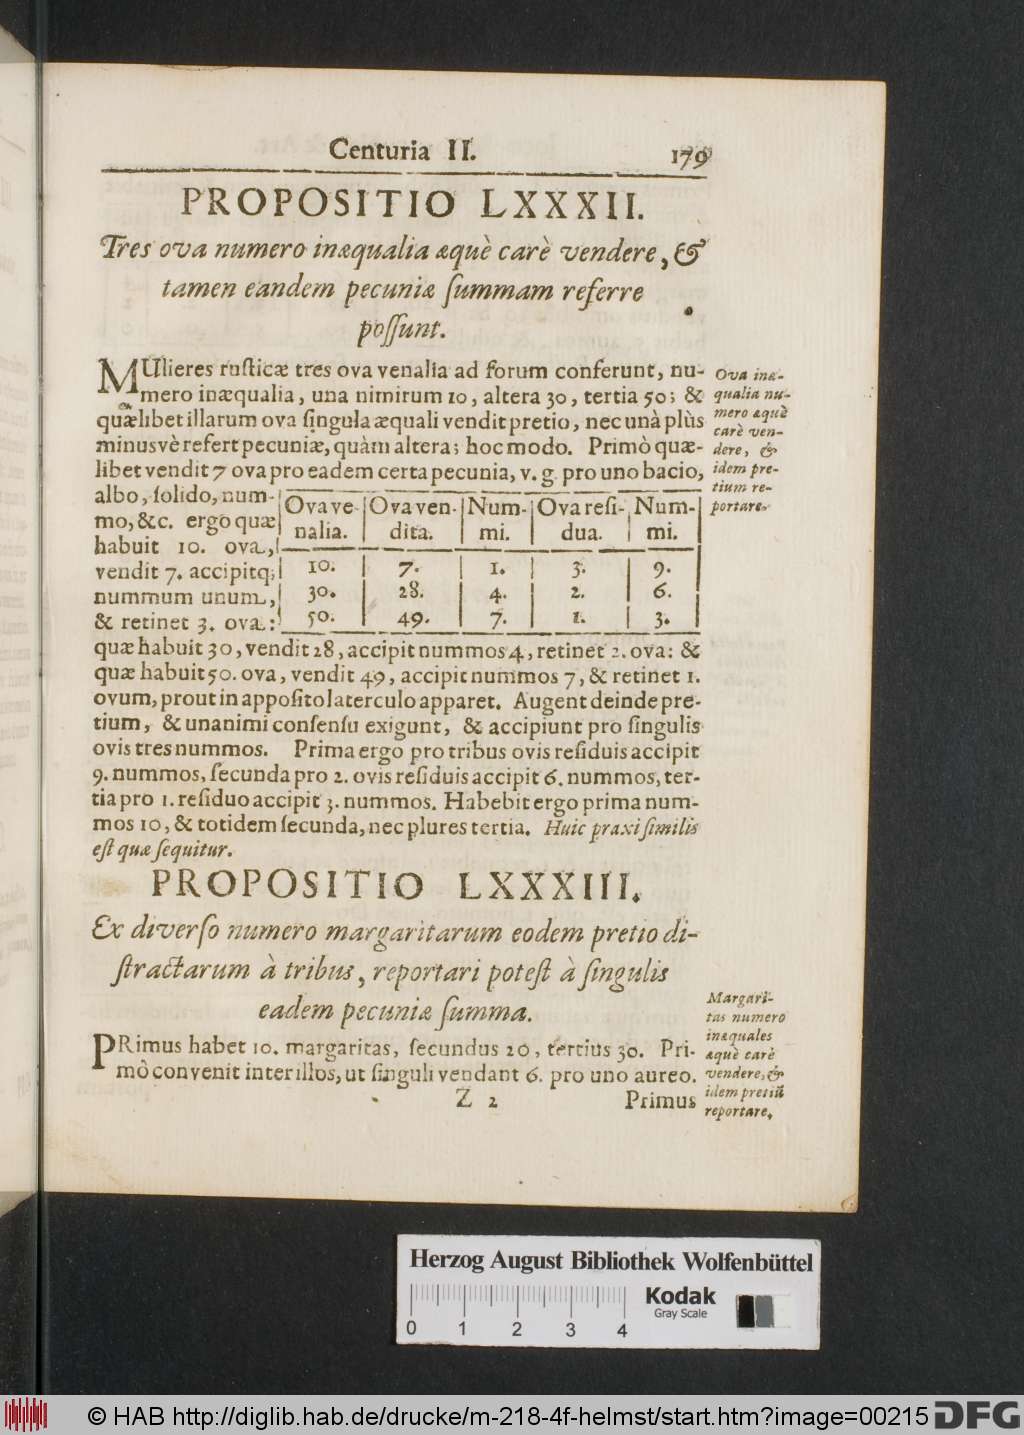 Centuria II. 179
PROPOSITIO LXXXII.
Tres ova numero inæqualia æquè carè vendere, &
tamen eandem pecuniæ ſummam referre
poſſunt.
MUlieres ruſticæ tres ova venalia ad forum conferunt, nu-
mero inæqualia, una nimirum 10, altera 30, tertia 50; &
quælibet illarum ova ſingula æquali vendit pretio, nec unà plùs
minusvè refert pecuniæ, quàm altera; hoc modo. Primò quæ-
libet vendit 7 ova pro eadem certa pecunia, v. g. pro uno bacio,
Ova inæ-
qualia nu-
mero æquè
carè ven-
dere, &
idem pre-
tium re-
portare.
albo, ſolido, num-
mo, &c. ergo quæ
habuit 10. ova,
vendit 7. accipitq;
nummum unum,
& retinet 3. ova:
Ova ve- | Ova ven- | Num- | Ova reſi- | Num-
nalia. | dita. | mi. | dua. | mi.
10. | 7. | 1. | 3. | 9.
30. | 28. | 4. | 2. | 6.
50. | 49. | 7. | 1. | 3.
quæ habuit 30, vendit 28, accipit nummos 4, retinet 2. ova: &
quæ habuit 50. ova, vendit 49, accipit nummos 7, & retinet 1.
ovum, prout in appoſito laterculo apparet. Augent deinde pre-
tium, & unanimi conſenſu exigunt, & accipiunt pro ſingulis
ovis tres nummos. Prima ergo pro tribus ovis reſiduis accipit
9. nummos, ſecunda pro 2. ovis reſiduis accipit 6. nummos, ter-
tia pro 1. reſiduo accipit 3. nummos. Habebit ergo prima num-
mos 10, & totidem ſecunda, nec plures tertia. Huic praxi ſimilis
eſt quæ ſequitur.
PROPOSITIO LXXXIII.
Ex diverſo numero margaritarum eodem pretio di-
ſtractarum à tribus, reportari poteſt à ſingulis
eadem pecuniæ ſumma.
PRimus habet 10. margaritas, ſecundus 20, tertius 30. Pri-
mò convenit inter illos, ut ſinguli vendant 6. pro uno aureo.
Margari-
tas numero
inæquales
æquè carè
vendere, &
idem pretiũ
reportare.
Z 2 Primus
Herzog August Bibliothek Wolfenbüttel
Kodak
Gray Scale
0 1 2 3 4
© HAB http://diglib.hab.de/drucke/m-218-4f-helmst/start.htm?image=00215 DFG